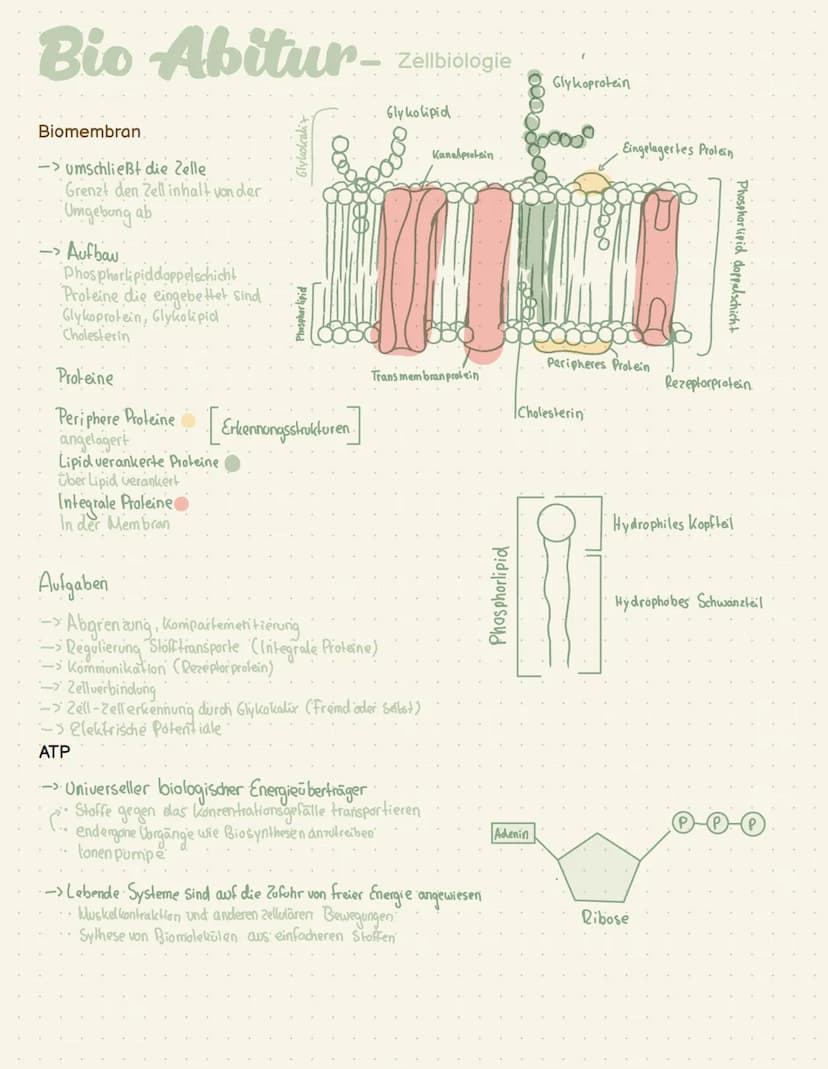 Bio Abitur - Zellbiologie
Biomembran
-> umschließt die Zelle
Grenzt den Zellinhalt von der
Umgebung ab
-> Aufbau
Phosphorlipiddoppelschicht
Proteine die eingebettet sind
Glykoprotein, Glykolipid
Cholesterin
Proteine
Periphere Proteine
angelagert
[Erkennungsstrukturen]
Lipidverankerte Proteine
über Lipid verankert
Integrale Proteine
In der Membran
Glykokalix
Glykolipid
Glykoprotein
Kanalprotein
Eingelagertes Protein
Phosphorlipid doppelschicht
Phosphorlipid
Transmembranprotein
Peripheres Protein
Rezeptorprotein
Cholesterin
Phosphorlipid
Hydrophiles Kopfteil
Hydrophobes Schwanzteil
Aufgaben
-> Abgrenzung, Kompartementierung
-> Regulierung Stofftransporte (Integrale Proteine)
-> Kommunikation (Rezeptorprotein)
-> Zellverbindung
-> Zell-Zellerkennung durch Glykokalix (Fremd oder Selbst)
-> Elektrische Potentiale
ATP
-> Universeller biologischer Energieüberträger
· Stoffe gegen das Konzentrationsgefälle transportieren
· endergone Vorgänge wie Biosynthesen anzutreiben
· Ionenpumpe
-> Lebende Systeme sind auf die Zufuhr von freier Energie angewiesen
· Muskelkontraktion und anderen zellulären Bewegungen
· Sythese von Biomolekülen aus einfacheren Stoffen
Adenin
P P P
Ribose